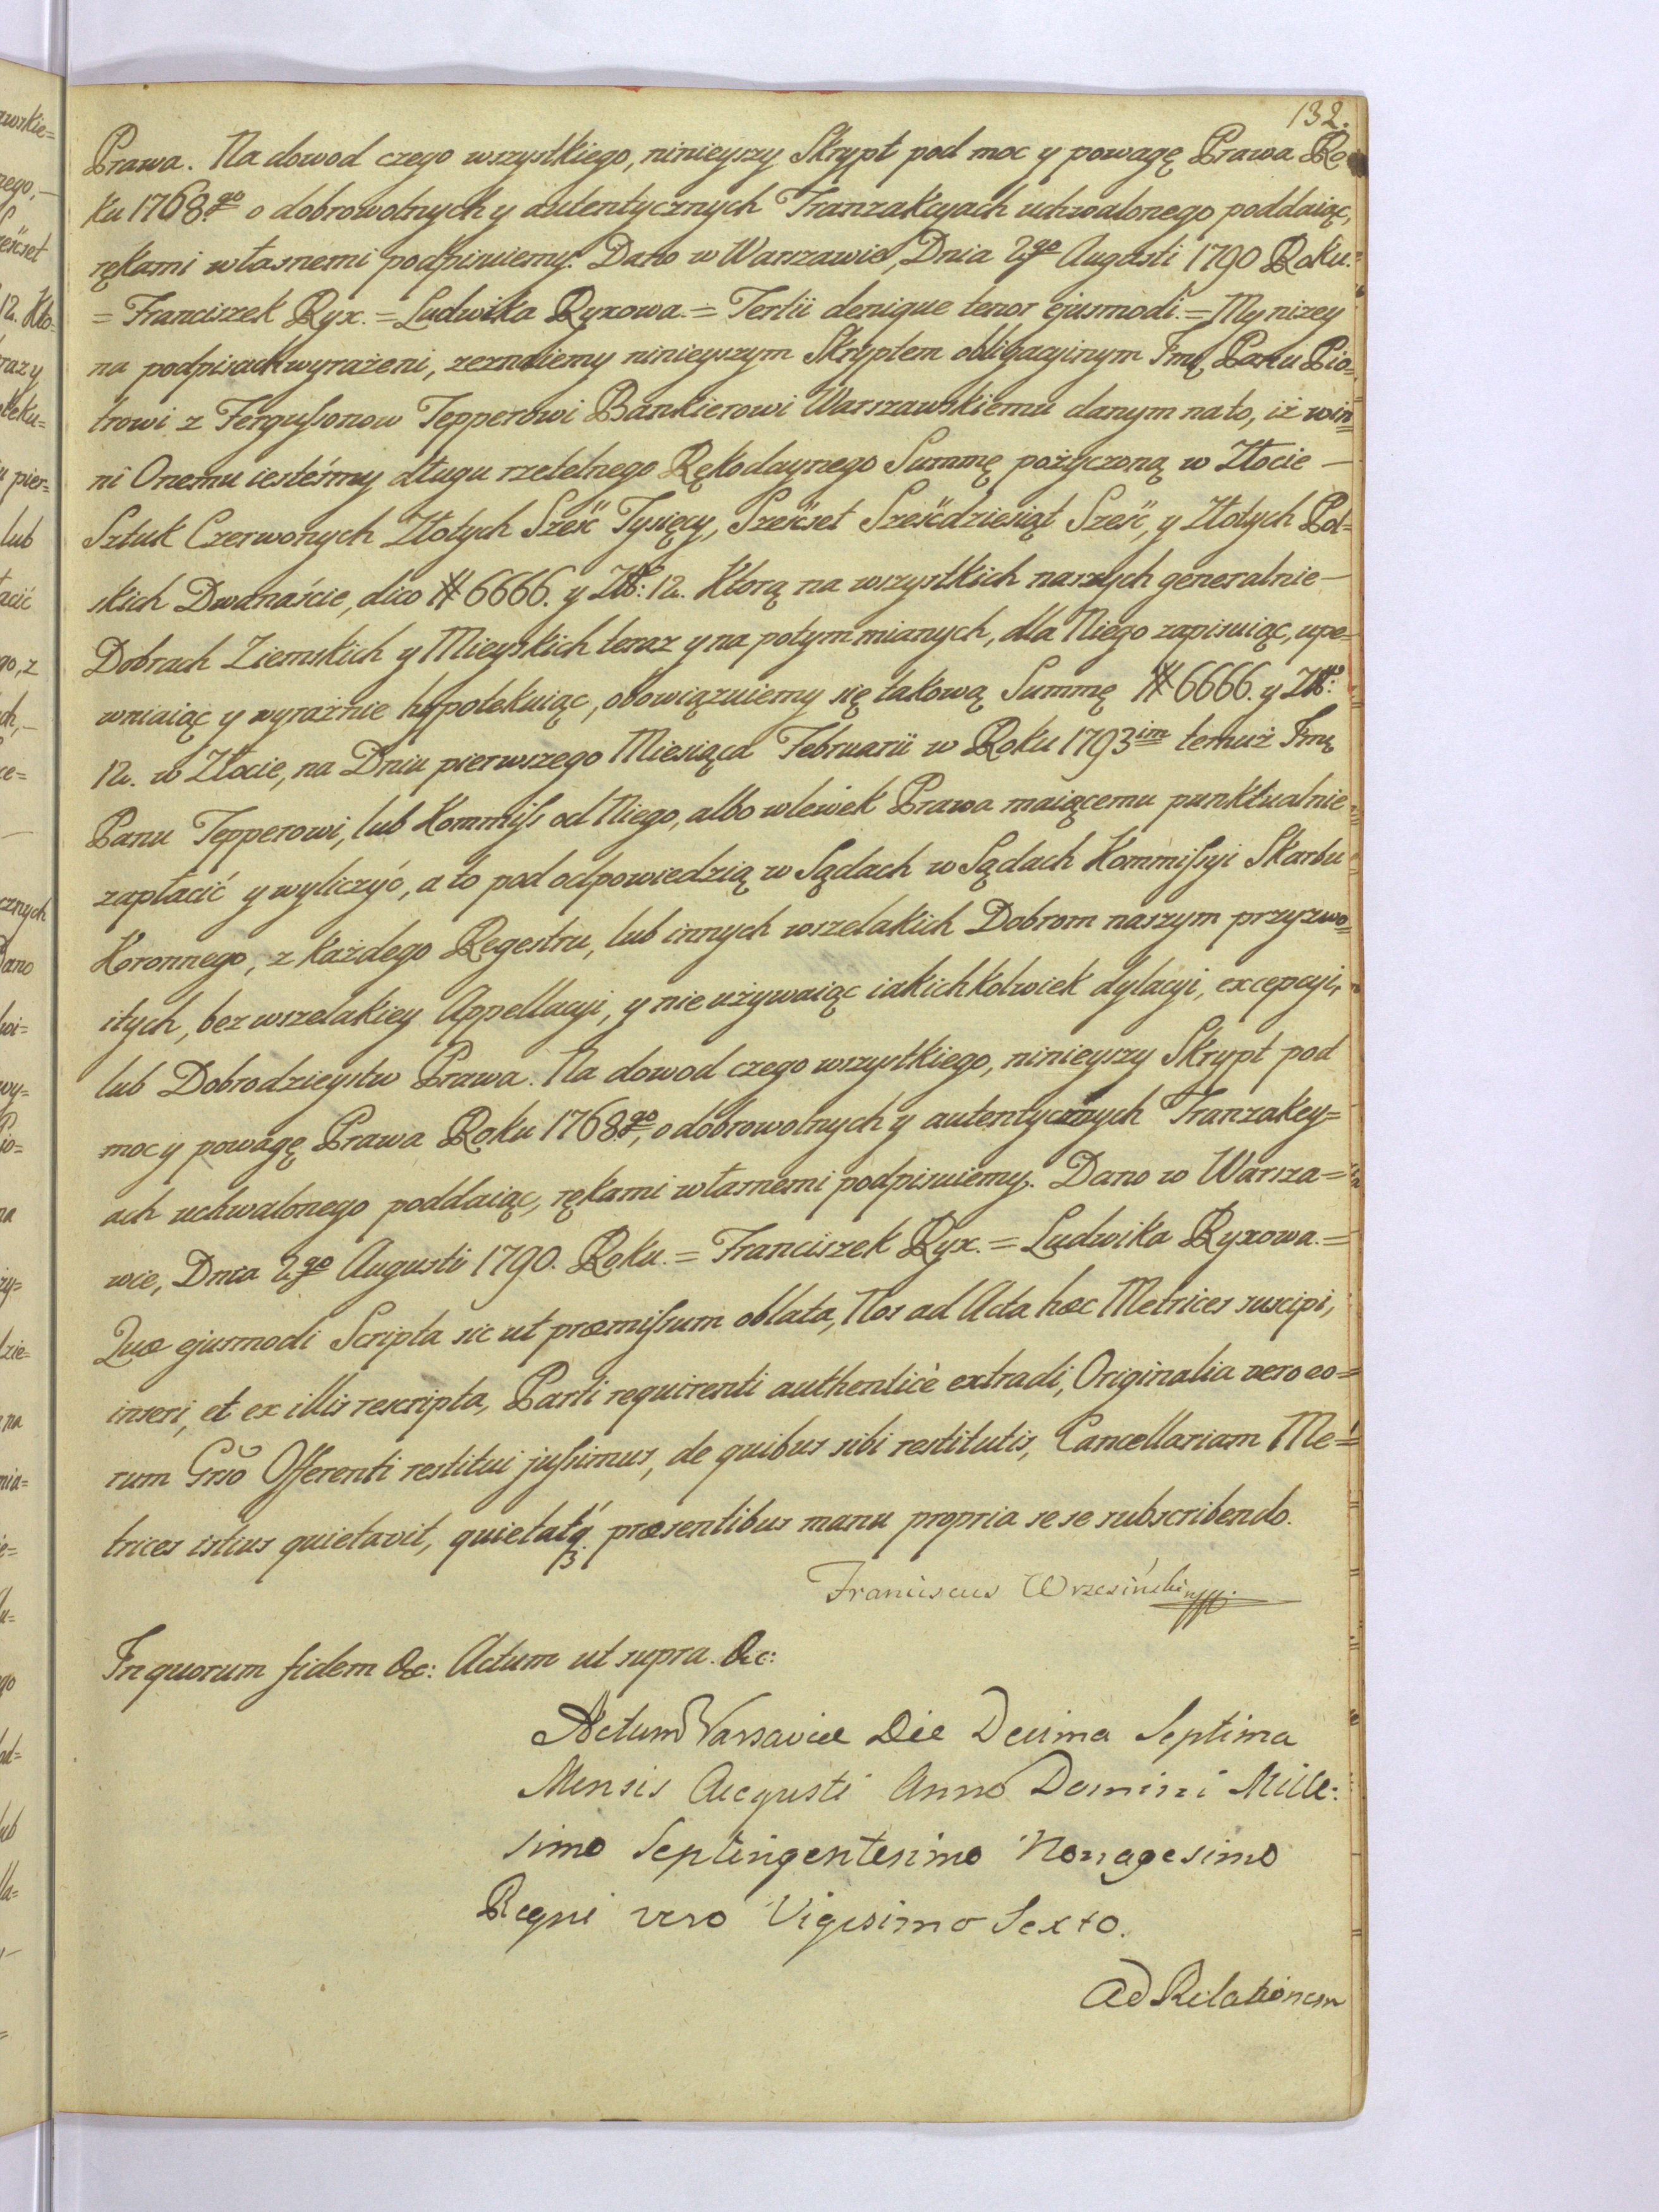 132.
Prawa. Na dowod czego wszystkiego, ninieyszy Skrypt pod moc y powagę Prawa Ro
ku 1768.go o dobrowolnych y autentycznych Tranzakcyach uchwalonego poddaiąc,
rękami własnemi podpisuiemy. Dano w Warszawie, Dnia 2go Augusti 1790 Roku.
= Franciszek Ryx. = Ludwika Ryxowa. = Tertii denique tenor ejusmodi. = My niżey
na podpisach wyrażeni, zeznaiemy ninieyszym Skryptem obligacyinym Jmć Panu Pio=
trowi z Fergussonow Tepperowi Bankierowi Warszawskiemu danym na to, iż win=
ni Onemu iesteśmy długu rzetelnego Rękodaynego Summę pożyczoną w Złocie —
Sztuk Czerwonych Złotych Sześć Tysięcy, Sześćset Sześćdziesiąt Sześć, y Złotych Pol=
skich Dwanaście, dico # 6666. y Złł: 12. Ktorą na wszystkich naszych generalnie —
Dobrach Ziemskich y Mieyskich teraz y na potym mianych, dla Niego zapisuiąc, upe=
wniaiąc y wyraźnie hypotekuiąc, obowiązuiemy się takową Summę # 6666. y Złł:
12. w Złocie, na Dniu pierwszego Miesiąca Februarii w Roku 1793im temuż Jmć
Panu Tepperowi, lub Kommiss od Niego, albo wlewek Prawa maiącemu punktualnie
zapłacić y wyliczyć, a to pod odpowiedzią w Sądach w Sądach Kommissyi Skarbu
Koronnego, z każdego Regestru, lub innych wszelakich Dobrom naszym przyzwo=
itych, bez wszelakiey Appellacyi, y nie używaiąc iakichkolwiek dylacyi, excepcyi,
lub Dobrodzieystw Prawa. Na dowod czego wszystkiego, ninieyszy Skrypt pod
moc y powagę Prawa Roku 1768go, o dobrowolnych y autentycznych Tranzakcy=
ach uchwalonego poddaiąc, rękami własnemi podpisuiemy. Dano w Warsza=
wie, Dnia 2go Augusti 1790. Roku. = Franciszek Ryx. = Ludwika Ryxowa. =
Quæ ejusmodi Scripta sic ut præmissum oblata, Nos ad Acta hæc Metrices suscipi,
inseri, et ex illis rescripta, Parti requirenti authenticè extradi, Originalia vero eo=
rum Grso Offerenti restitui jussimus, de quibus sibi restitutis, Cancellariam Me=
trices istius quietavit, quietatq3 præsentibus manu propria se se subscribendo.
Franciscus Wrzesiński mpp.
In quorum fidem &c: Actum ut supra. &c:
Actum Varsaviæ Die Decima Septima
Mensis Augusti Anno Domini Mille:
simo Septingentesimo Nonagesimo
Regni vero Vigesimo Sexto.
Ad Relationem